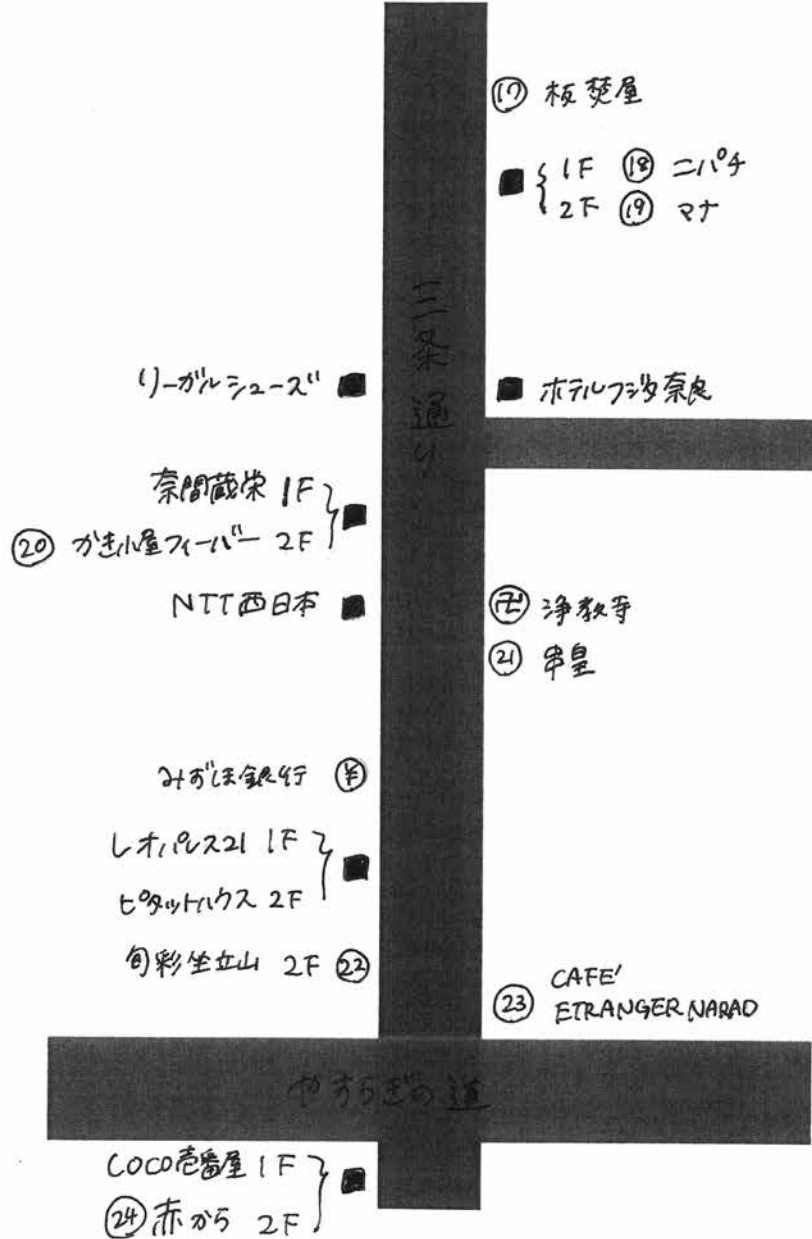 ⑰ 板焚屋
1F ⑱ ニパチ
2F ⑲ マナ
三条通り
リーガルシューズ
ホテルフジタ奈良
奈間蔵栄 1F
⑳ かき小屋フィーバー 2F
NTT西日本
卍 浄教寺
㉑ 串皇
みずほ銀行 ¥
レオパレス21 1F
ピタットハウス 2F
旬彩坐立山 2F ㉒
㉓ CAFE'
ETRANGER NARAD
やすらぎの道
COCO壱番屋 1F
㉔ 赤から 2F